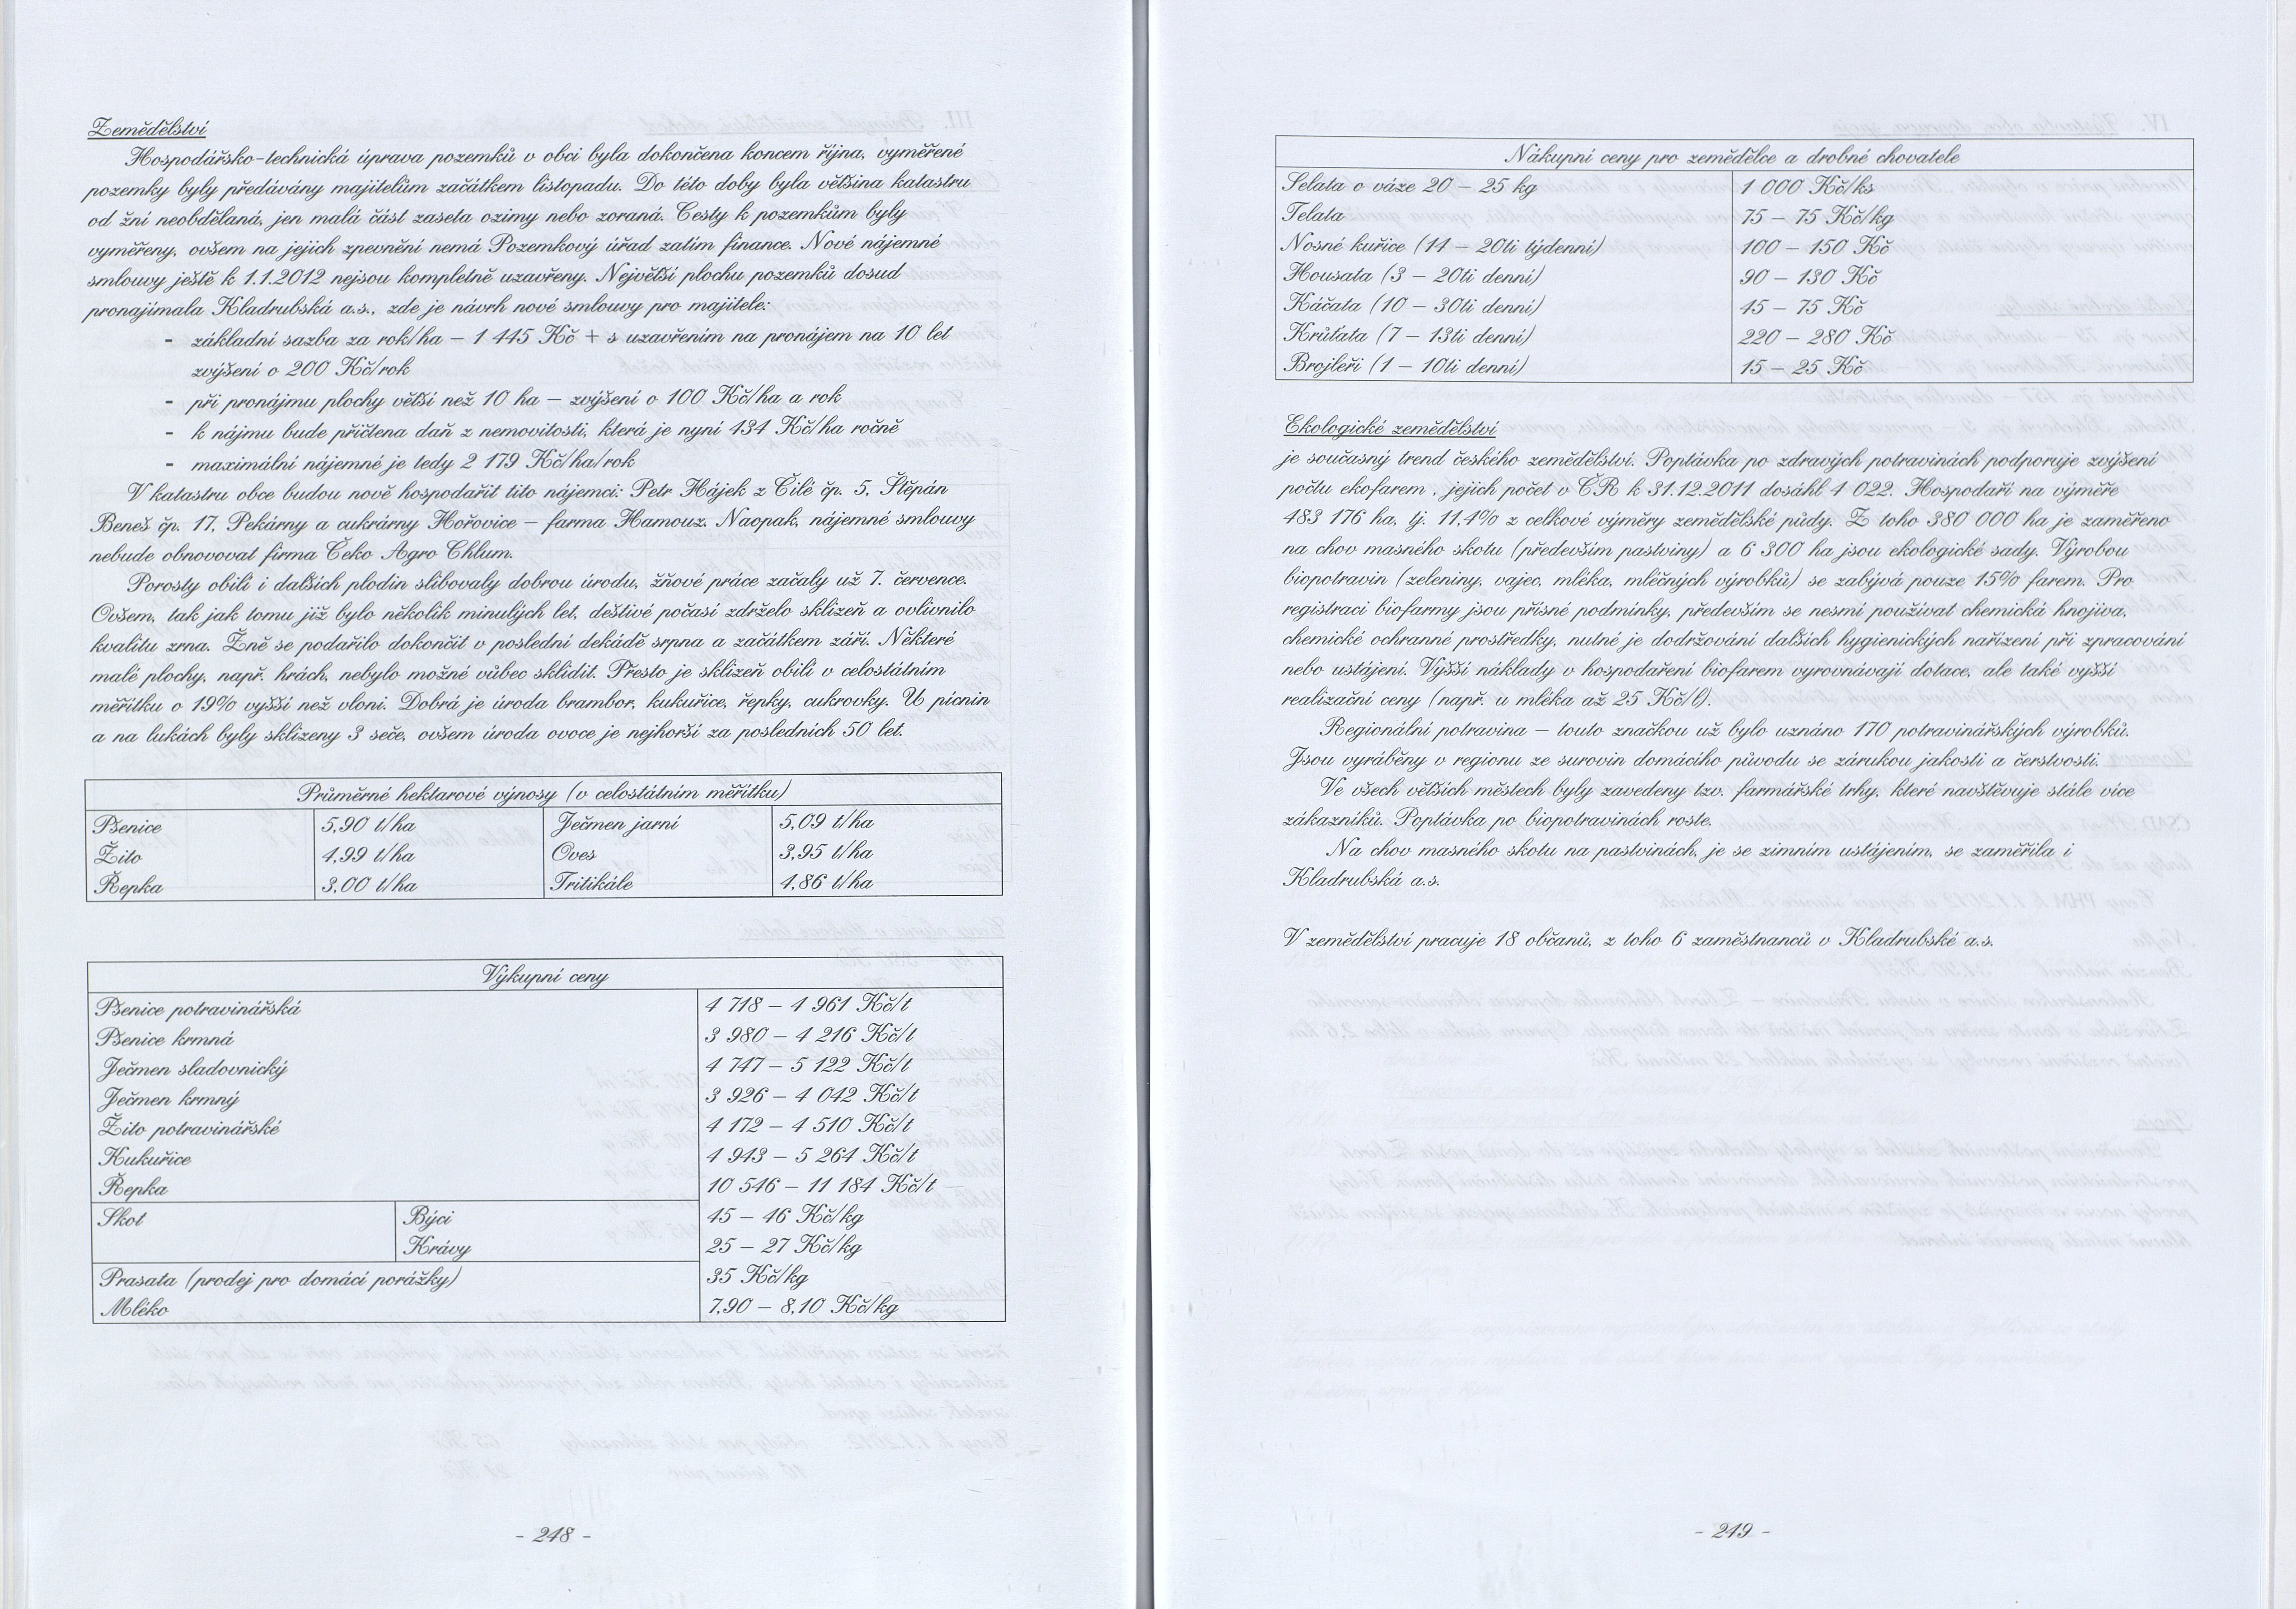 Zemědělství
Hospodářsko-technická úprava pozemků v obci byla dokončena koncem října, vyměřené
pozemky byly předávány majitelům začátkem listopadu. Do této doby byla většina katastru
od žní neobdělaná, jen malá část zaseta ozimy nebo zoraná. Cesty k pozemkům byly
vyměřeny, ovšem na jejich zpevnění nemá Pozemkový úřad zatím finance. Nové nájemné
smlouvy ještě k 1.1.2012 nejsou kompletně uzavřeny. Největší plochu pozemků dosud
pronajímala Kladrubská a.s., zde je návrh nové smlouvy pro majitele:
- základní sazba za rok/ha – 1 445 Kč + s uzavřením na pronájem na 10 let
zvýšení o 200 Kč/rok
- při pronájmu plochy větší než 10 ha – zvýšení o 100 Kč/ha a rok
- k nájmu bude přičtena daň z nemovitosti, která je nyní 434 Kč/ha ročně
- maximální nájemné je tedy 2 179 Kč/ha/rok
V katastru obce budou nově hospodařit tito nájemci: Petr Hájek z Cílé čp. 5, Štěpán
Beneš čp. 17, Pekárny a cukrárny Hořovice – farma Hamouz. Naopak, nájemné smlouvy
nebude obnovovat firma Čeko Agro Chlum.
Porosty obilí i dalších plodin slibovaly dobrou úrodu, žňové práce začaly už 7. července.
Ovšem, tak jak tomu již bylo několik minulých let, deštivé počasí zdrželo sklizeň a ovlivnilo
kvalitu zrna. Žně se podařilo dokončit v poslední dekádě srpna a začátkem září. Některé
malé plochy, např. hrách, nebylo možné vůbec sklidit. Přesto je sklizeň obilí v celostátním
měřítku o 19% vyšší než vloni. Dobrá je úroda brambor, kukuřice, řepky, cukrovky. U pícnin
a na lukách byly sklizeny 3 seče, ovšem úroda ovoce je nejhorší za posledních 50 let.
Průměrné hektarové výnosy (v celostátním měřítku)
Pšenice 5,90 t/ha Ječmen jarní 5,09 t/ha
Žito 4,99 t/ha Oves 3,95 t/ha
Řepka 3,00 t/ha Tritikále 4,86 t/ha
Výkupní ceny
Pšenice potravinářská 4 718 – 4 961 Kč/t
Pšenice krmná 3 980 – 4 216 Kč/t
Ječmen sladovnický 4 747 – 5 122 Kč/t
Ječmen krmný 3 926 – 4 042 Kč/t
Žito potravinářské 4 172 – 4 510 Kč/t
Kukuřice 4 943 – 5 264 Kč/t
Řepka 10 546 – 11 184 Kč/t
Skot Býci 45 – 46 Kč/kg
Krávy 25 – 27 Kč/kg
Prasata (prodej pro domácí porážky) 35 Kč/kg
Mléko 7,90 – 8,10 Kč/kg
- 248 -
Nákupní ceny pro zemědělce a drobné chovatele
Selata o váze 20 – 25 kg 1 000 Kč/ks
Telata 75 – 75 Kč/kg
Nosné kuřice (14 – 20ti týdenní) 100 – 150 Kč
Housata (3 – 20ti denní) 90 – 130 Kč
Káčata (10 – 30ti denní) 45 – 75 Kč
Krůťata (7 – 13ti denní) 220 – 280 Kč
Brojleři (1 – 10ti denní) 15 – 25 Kč
Ekologické zemědělství
je současný trend českého zemědělství. Poptávka po zdravých potravinách podporuje zvýšení
počtu ekofarem , jejich počet v ČR k 31.12.2011 dosáhl 4 022. Hospodaří na výměře
483 176 ha, tj. 11,4% z celkové výměry zemědělské půdy. Z toho 380 000 ha je zaměřeno
na chov masného skotu (především pastviny) a 6 300 ha jsou ekologické sady. Výrobou
biopotravin (zeleniny, vajec, mléka, mléčných výrobků) se zabývá pouze 15% farem. Pro
registraci biofarmy jsou přísné podmínky, především se nesmí používat chemická hnojiva,
chemické ochranné prostředky, nutné je dodržování dalších hygienických nařízení při zpracování
nebo ustájení. Vyšší náklady v hospodaření biofarem vyrovnávají dotace, ale také vyšší
realizační ceny (např. u mléka až 25 Kč/l).
Regionální potravina – touto značkou už bylo uznáno 170 potravinářských výrobků.
Jsou vyráběny v regionu ze surovin domácího původu se zárukou jakosti a čerstvosti.
Ve všech větších městech byly zavedeny tzv. farmářské trhy, které navštěvuje stále více
zákazníků. Poptávka po biopotravinách roste.
Na chov masného skotu na pastvinách, je se zimním ustájením, se zaměřila i
Kladrubská a.s.
V zemědělství pracuje 18 občanů, z toho 6 zaměstnanců v Kladrubské a.s.
- 249 -